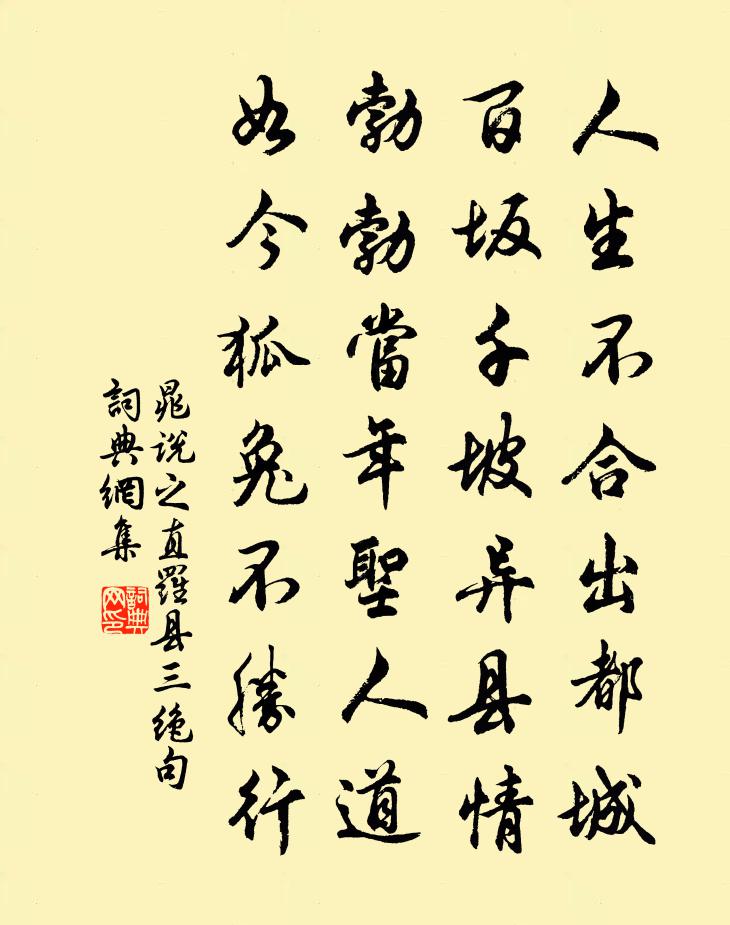 人生不合出都城
百坂千坡异县情
勃勃當年聖人道
如今狐兔不勝行
晁说之直羅县三绝句
詞典網集
詞典网印